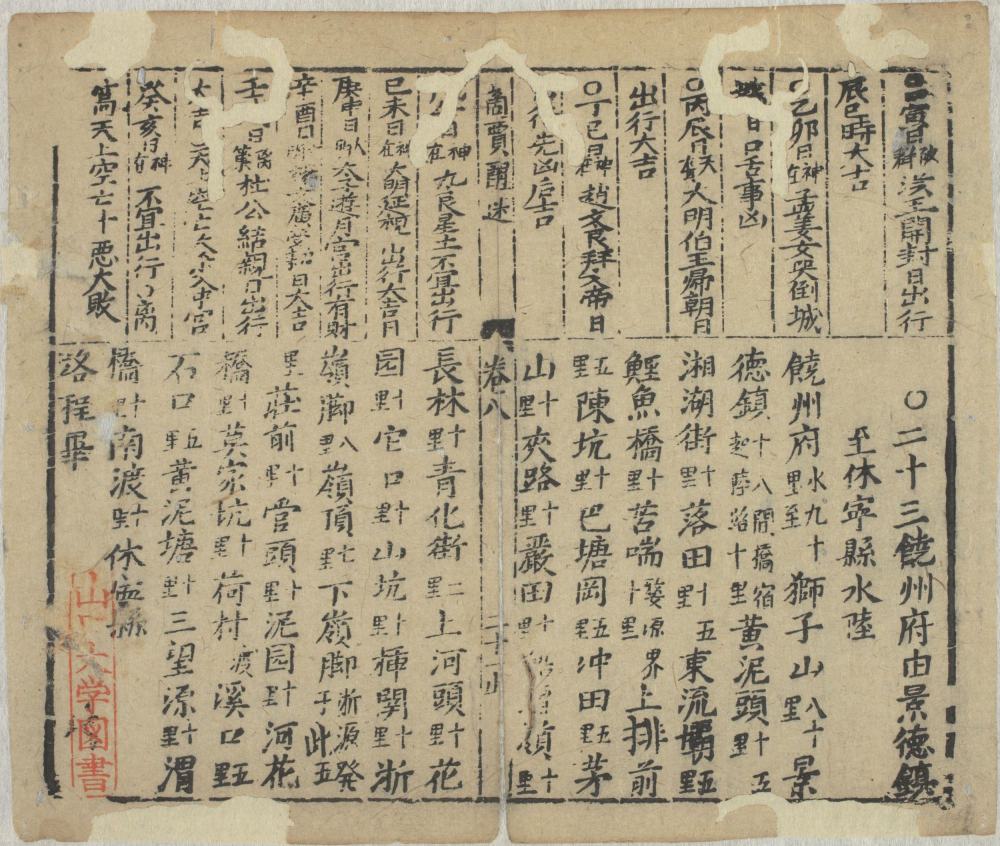 寅日 洪王開封日出行
辰巳時大吉
〇乙卯日神在 孟姜女哭倒城
城 日口舌事凶
〇丙辰日天 大明伯王帰朝日
出行大吉
〇丁巳日神在 趙文良拜文帝日
行先凶后吉
商賈醒迷
日神在 九良星土不宜出行
己未日神在 大明延視 出行大吉月
庚申日 太子遊月宮出行有財
辛酉日 日大吉
壬 日 杜公結親日出行
大吉天上空亡 入中宮
癸亥日神在 不宜出行 离
窩天上空亡十悪大敗
〇二十三饒州府由景德鎮
至休寧縣水陸
饒州府水九十里至 獅子山八十里 景
德鎮十八開橋宿起陸路十里 黃泥頭十五里
湘湖街十里 落田十五里 東流壩五里
鯉魚橋十里 苦喘婺源界十里 上排前
五里 陳坑十里 巴塘岡五里 冲田五里 茅
山十里 夾路十里 嚴田十 嶺十里
卷八
長林十里 青化街二里 上河頭十里 花
园十里 它口十里 山坑十里 揮関十里 浙
嶺脚八里 嶺頂七里 下嶺脚浙源發于此五
里 莊前十里 営頭十里 泥园十里 河花
橋十里 莫家坑十里 荷村渡 溪口五里
石口五里 黃泥塘十里 三望源十里 渭
橋十里 南渡十里 休寧縣
路程畢
山 大学図書